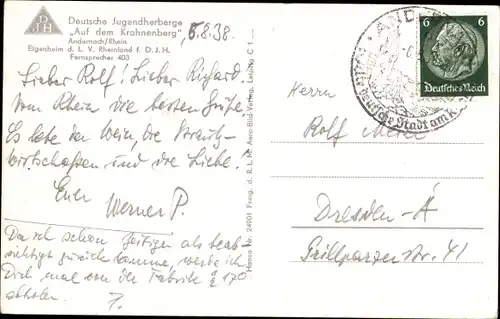 Deutsche Jugendherberge
„Auf dem Krahnenberg"
Andernach/Rhein
Eigenheim d. L. V. Rheinland f. D. J. H.
Fernsprecher 403
DJH
6.8.38.
Lieber Rolf! Lieber Richard,
Vom Rhein die besten Grüße
Es lebe der Wein, die Strauß-
wirtschaften und die Liebe.
Euer
Werner P.
Da ich schon zeitiger als beab-
sichtigt zurück komme, werde ich
Dich mal von der Fabrik
abholen.
Hansa Nr. 24901 Freig. d. R. L. M. Aero-Bild-Verlag, Leipzig C 1
6 6
Deutsches Reich
deutsche Stadt am
Herrn
Rolf
Dresden-A
Grillparzerstr. 41